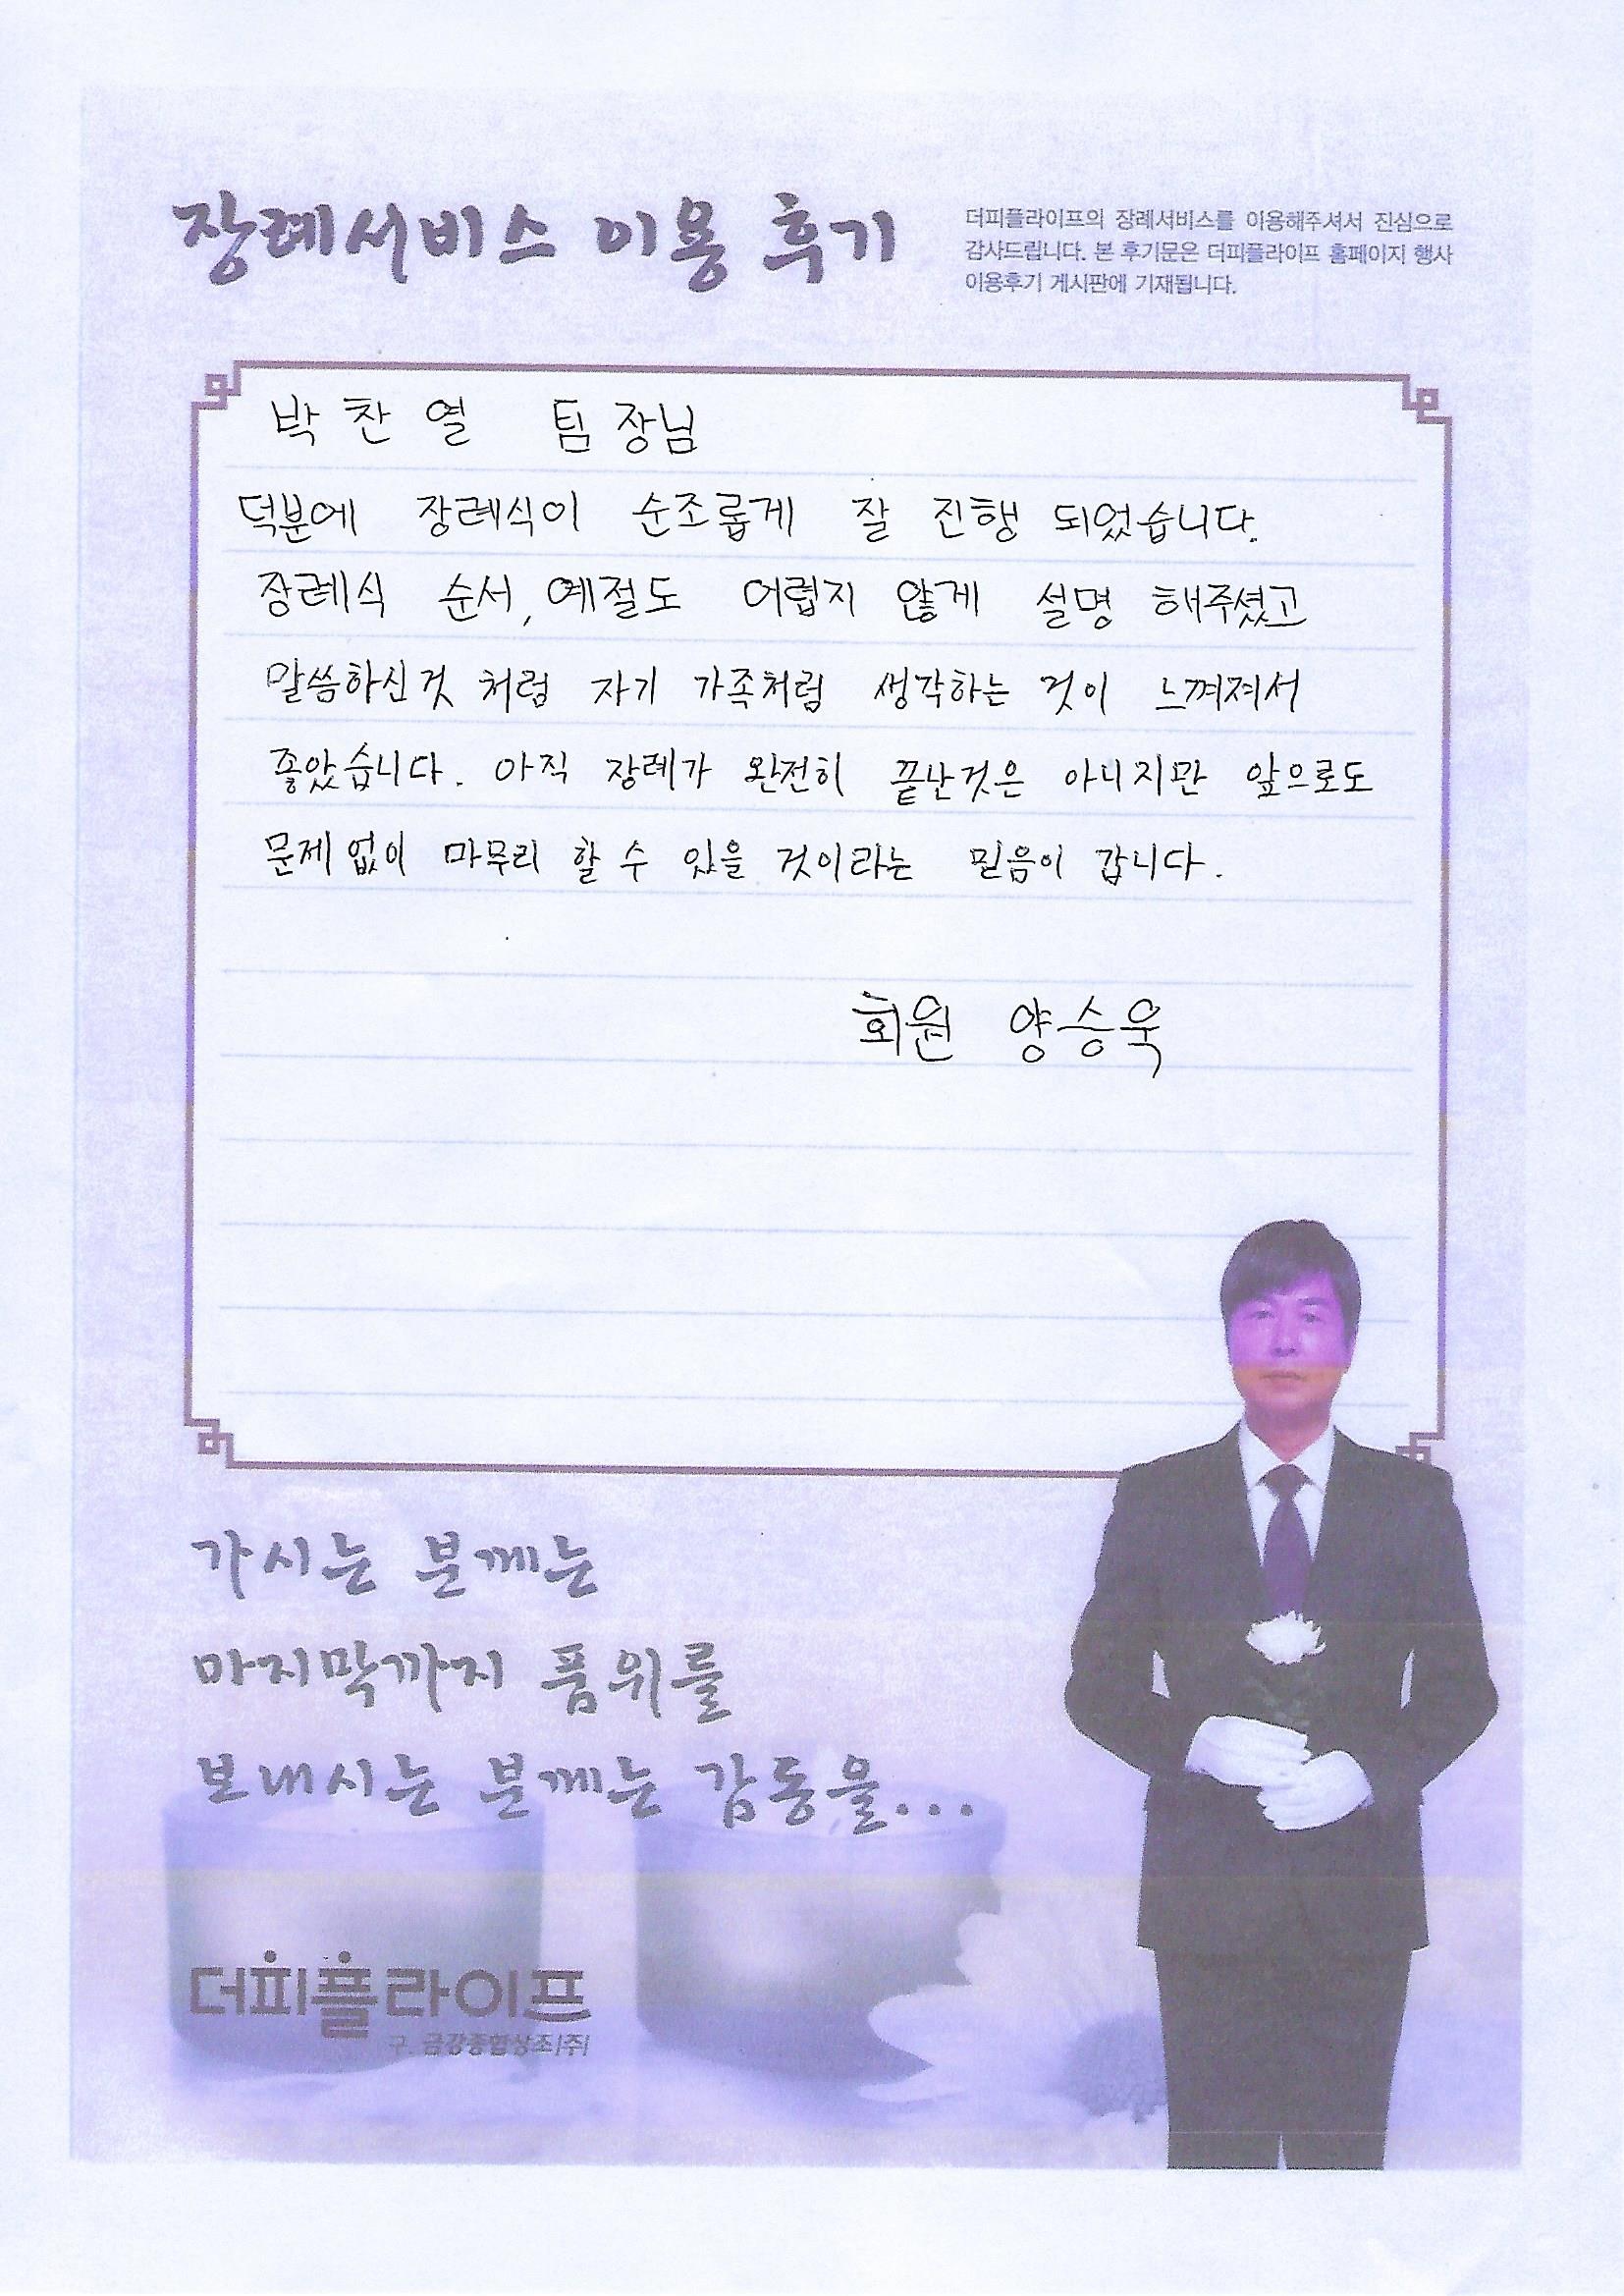 장례서비스 이용 후기
더피플라이프의 장례서비스를 이용해주셔서 진심으로
감사드립니다. 본 후기문은 더피플라이프 홈페이지 행사
이용후기 게시판에 기재됩니다.
박찬열 팀장님
덕분에 장례식이 순조롭게 잘 진행 되었습니다.
장례식 순서, 예절도 어렵지 않게 설명 해주셨고
말씀하신것 처럼 자기 가족처럼 생각하는 것이 느껴져서
좋았습니다. 아직 장례가 완전히 끝난것은 아니지만 앞으로도
문제 없이 마무리 할 수 있을 것이라는 믿음이 갑니다.
회원 양승욱
가시는 분께는
마지막까지 품위를
보내시는 분께는 감동을...
더피플라이프
구. 금강종합상조(주)